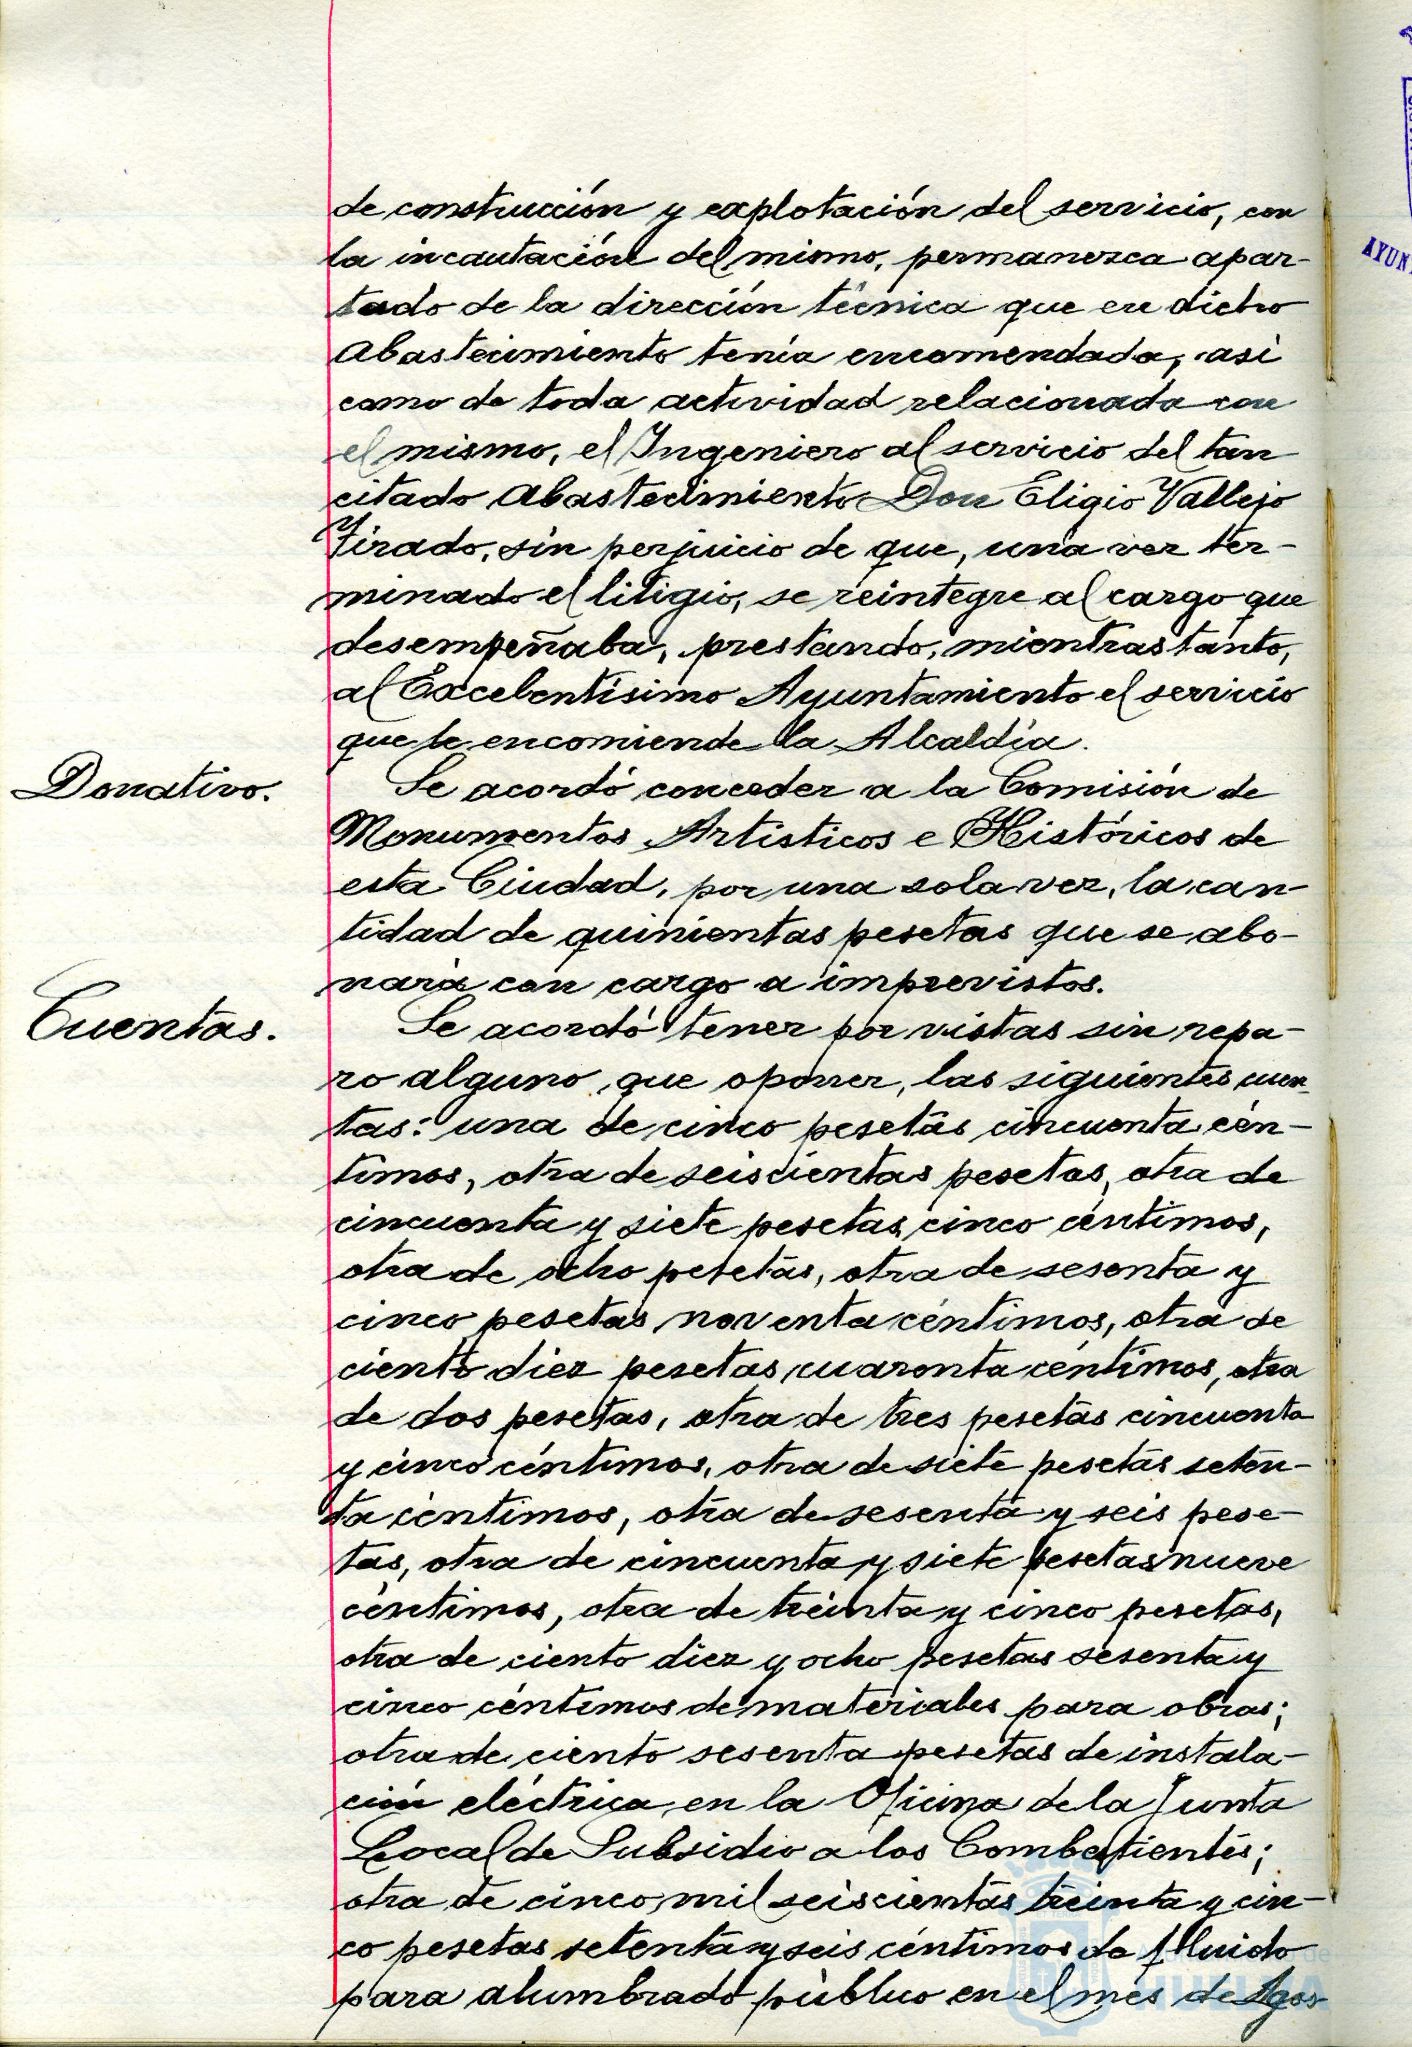 de construcción y explotación del servicio, con
la incautación del mismo, permanezca apar-
tado de la dirección técnica que en dicho
Abastecimiento tenía encomendada, así
como de toda actividad relacionada con
el mismo, el Ingeniero al servicio del tan
citado Abastecimiento Don Eligio Vallejo
Tirado, sin perjuicio de que, una vez ter-
minado el litigio, se reintegre al cargo que
desempeñaba, prestando, mientras tanto,
al Excelentísimo Ayuntamiento el servicio
que le encomiende la Alcaldía.
Donativo.
Se acordó conceder a la Comisión de
Monumentos Artísticos e Históricos de
esta Ciudad, por una sola vez, la can-
tidad de quinientas pesetas que se abo-
nará con cargo a imprevistos.
Cuentas.
Se acordó tener por vistas sin repa-
ro alguno que oponer, las siguientes cuen-
tas: una de cinco pesetas cincuenta cén-
timos, otra de seiscientas pesetas, otra de
cincuenta y siete pesetas cinco céntimos,
otra de ocho pesetas, otra de sesenta y
cinco pesetas noventa céntimos, otra de
ciento diez pesetas cuaronta céntimos, otra
de dos pesetas, otra de tres pesetas cincuenta
y cinco céntimos, otra de siete pesetas seten-
ta céntimos, otra de sesenta y seis pese-
tas, otra de cincuenta y siete pesetas nueve
céntimos, otra de treinta y cinco pesetas,
otra de ciento diez y ocho pesetas sesenta y
cinco céntimos de materiales para obras;
otra de ciento sesenta pesetas de instala-
ción eléctrica en la Oficina de la Junta
Local de Subsidio a los Combatientes;
otra de cinco mil seiscientas treinta y cin-
co pesetas setenta y seis céntimos de flluido
para alumbrado público en el mes de Agos-
AYUN
HUELVA